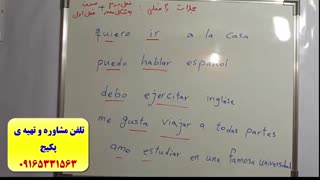 جملات ۲ فعلی : فعل دوم به شکل مصدر + صرف فعل اول
quiero ir a la casa
puedo hablar español
debo ejercitar inglese
me gusta viajar a todas partes
amo estudiar en una famosa universidad
تلفن مشاوره و تهیه ی
پکیج
۰۹۱۶۵۳۳۱۵۶۳